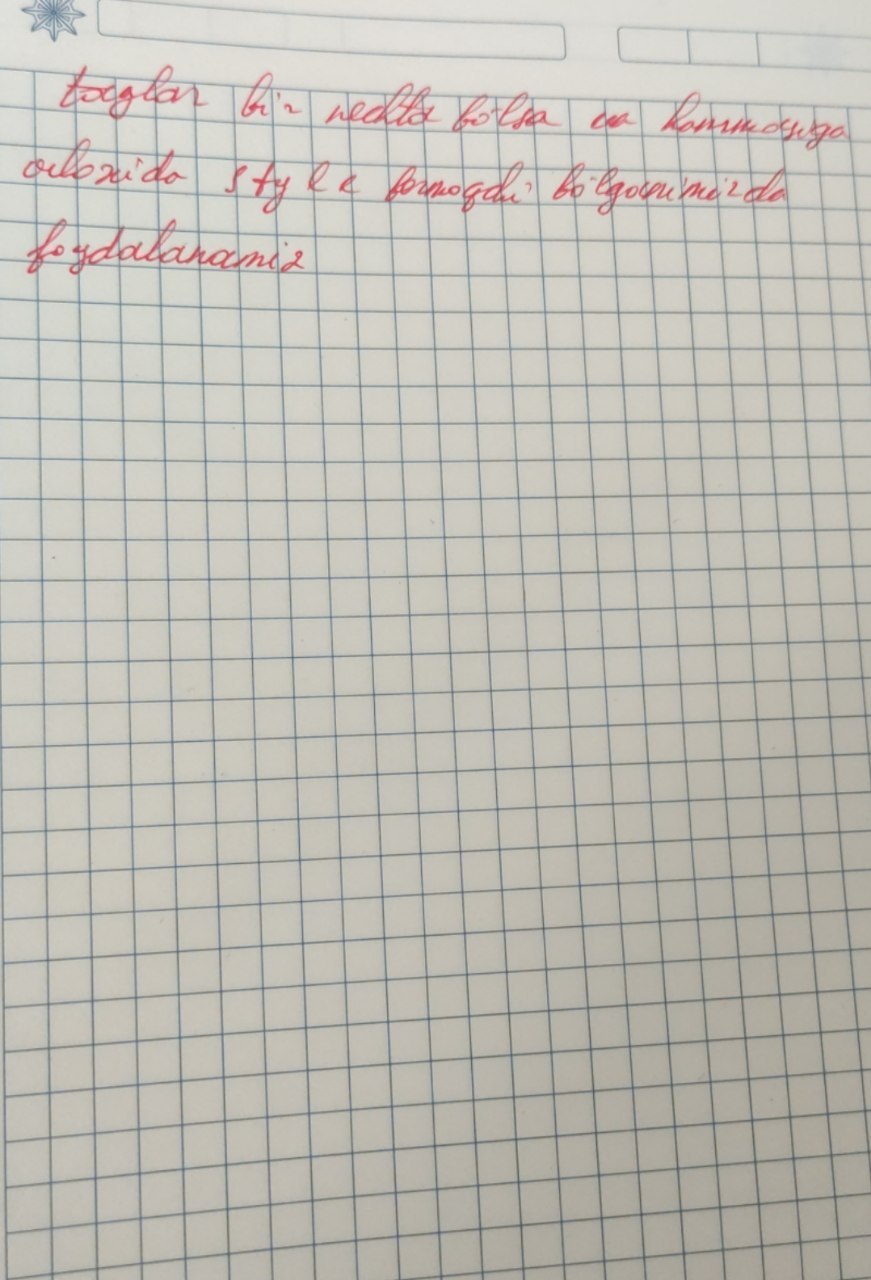 taglar bir nechta bo'lsa va hammasiga
aloxida style bermoqchi bo'lganimizda
foydalanamiz